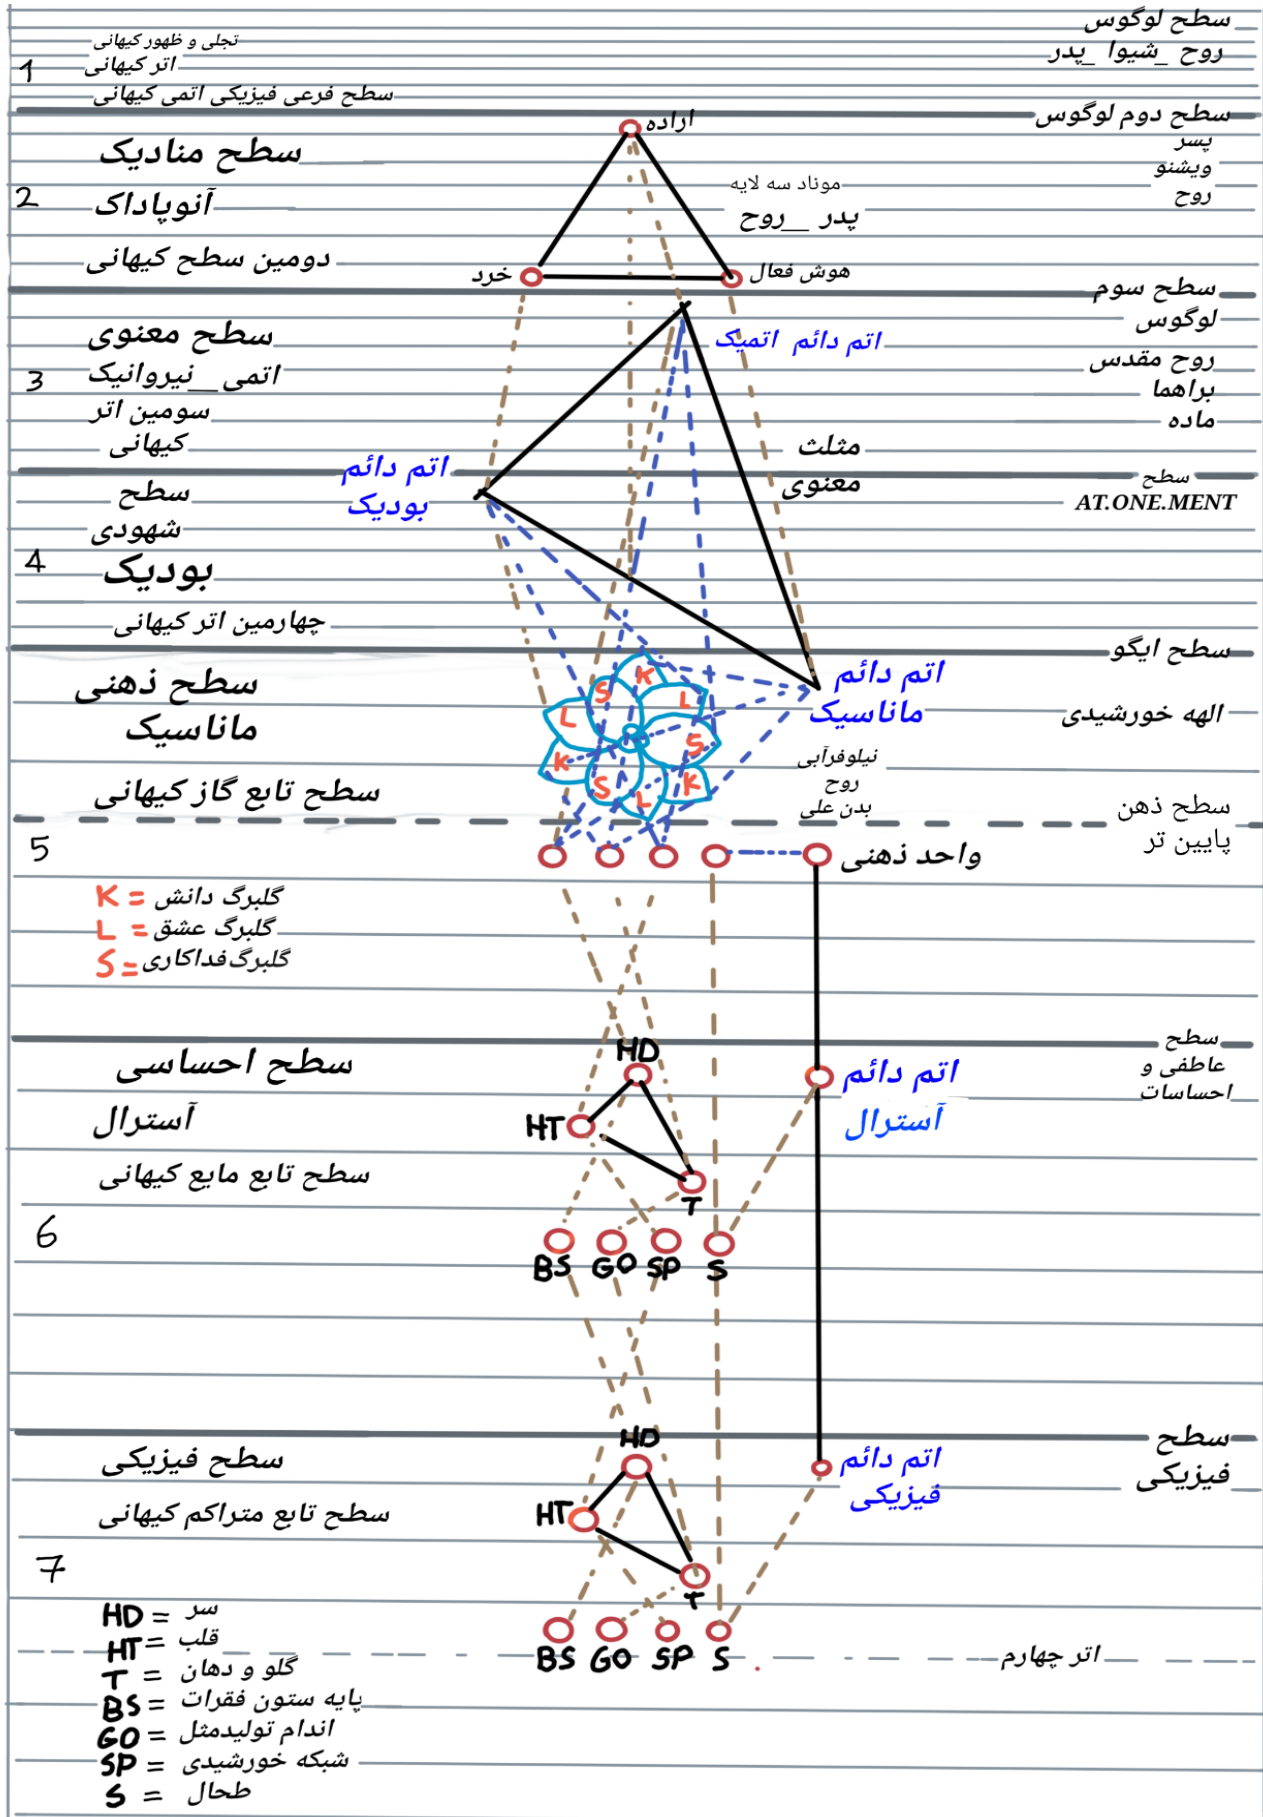 سطح لوگوس
روح _شیوا _پدر
تجلی و ظهور کیهانی
اتر کیهانی
1
سطح فرعی فیزیکی اتمی کیهانی
سطح دوم لوگوس
پسر
ویشنو
روح
اراده
سطح منادیک
2
آنوپاداک
دومین سطح کیهانی
موناد سه لایه
پدر __روح
خرد
هوش فعال
سطح سوم
لوگوس
روح مقدس
براهما
ماده
سطح معنوی
اتمی__نیروانیک
3
سومین اتر
کیهانی
اتم دائم اتمیک
مثلث
معنوی
اتم دائم
بودیک
سطح
AT.ONE.MENT
سطح
شهودی
4
بودیک
چهارمین اتر کیهانی
سطح ایگو
الهه خورشیدی
سطح ذهنی
ماناسیک
سطح تابع گاز کیهانی
اتم دائم
ماناسیک
K
S
L
L
S
K
K
S
L
نیلوفرآبی
روح
بدن علی
سطح ذهن
پایین تر
5
واحد ذهنی
K = گلبرگ دانش
L = گلبرگ عشق
S = گلبرگ فداکاری
سطح
عاطفی و
احساسات
سطح احساسی
آسترال
سطح تابع مایع کیهانی
HD
HT
T
اتم دائم
آسترال
6
BS GO SP S
سطح
فیزیکی
سطح فیزیکی
سطح تابع متراکم کیهانی
HD
HT
T
اتم دائم
فیزیکی
7
BS GO SP S
اتر چهارم
HD = سر
HT = قلب
T = گلو و دهان
BS = پایه ستون فقرات
GO = اندام تولیدمثل
SP = شبکه خورشیدی
S = طحال